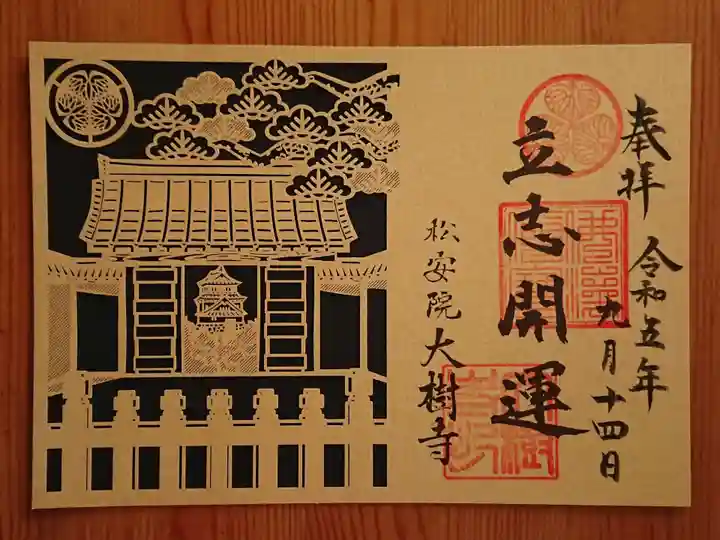 奉拝
令和五年
九月十四日
立志開運
松安院
大樹寺